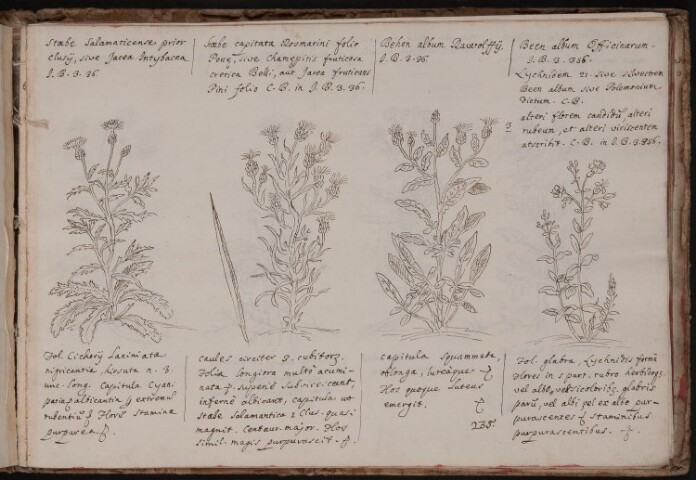 Stœbe Salamaticense prior
clusÿ, sive Jacea Intybacea
I.B. 3. 36
Stœbe capitata Rosmarini folio
Ponę, sive Chamępitis fruticosa
cretica Belli, aut Jacea fruticans
Pini folio C.B. in I.B. 3. 36.
Behen album Rauwolffÿ
I.B. 3. 36
Been album Officinarum.
I.B. 3. 356.
Lychnidem 21. sive silvestrem
Been album sive Polemonium
dictum. C.B.
alteri florem candidũ, alteri
rubeum, et alteri viriscentem
atscribit. C.B. in I.B. 3. 356.
Fol. Cichorÿ Laciniata
nigricantia, hirsuta n. 3.
unc. long. Capitula Cyani
paria,
rubentiũ Florũ Stamina
purpurea
caules circiter 2. cubitor.
Folia longiora multò acumi-
nata superne subvirescunt,
infernè albicant, capitula ut
stœbe Salamantica 2 Clus. quasi
magnit. Centaur. major. Flos
simil. magis purpurascit.
capitula Squammata,
oblonga, luteaque
Flos quoque luteus
emergit.
235.
Fol. glabra, Lychnidis formâ
Flores in 5 part. rubro herbidoq
vel albo, vel bicoloribq, glabris
parũ, vel albi vel ex albo pur-
purascenses staminibus
purpurascentibus.